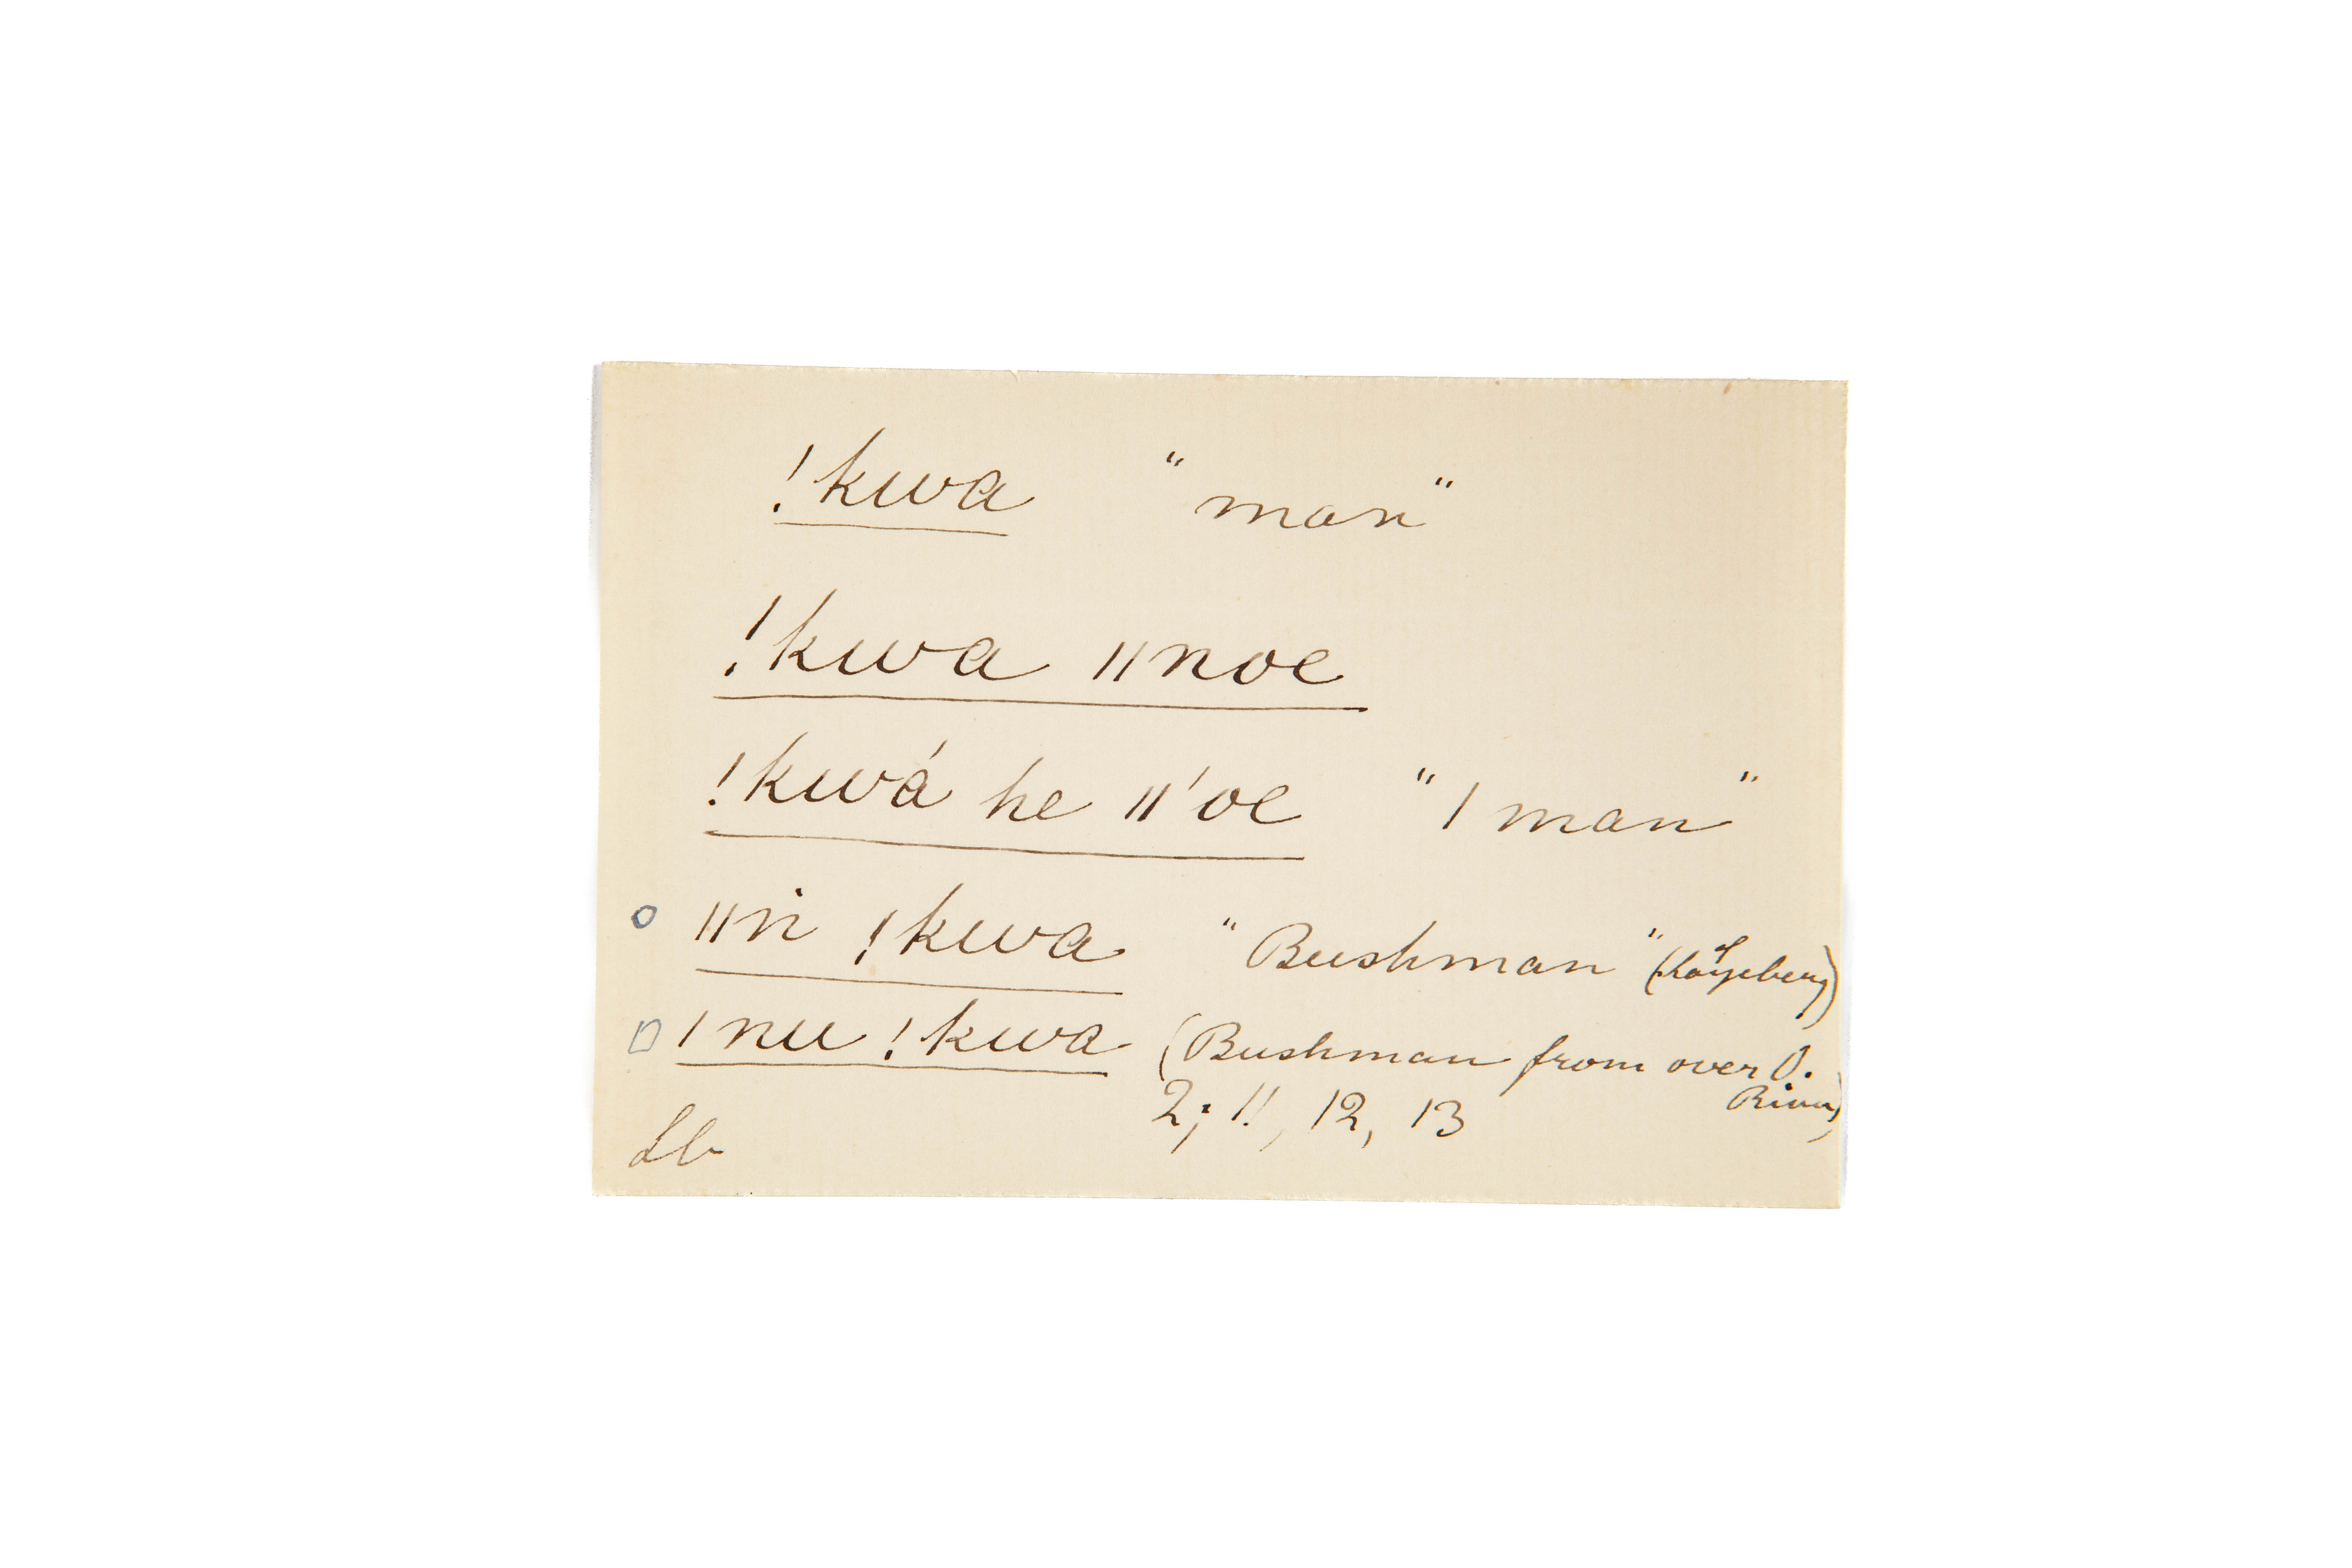 !kwa "man"
!kwa ǁnoe
!kwá he ǁ'oe "1 man"
ǁṅ !kwa "Bushman" (of
ǀnu !kwa (Bushman from over O.
River)
2; 11, 12, 13
Lb